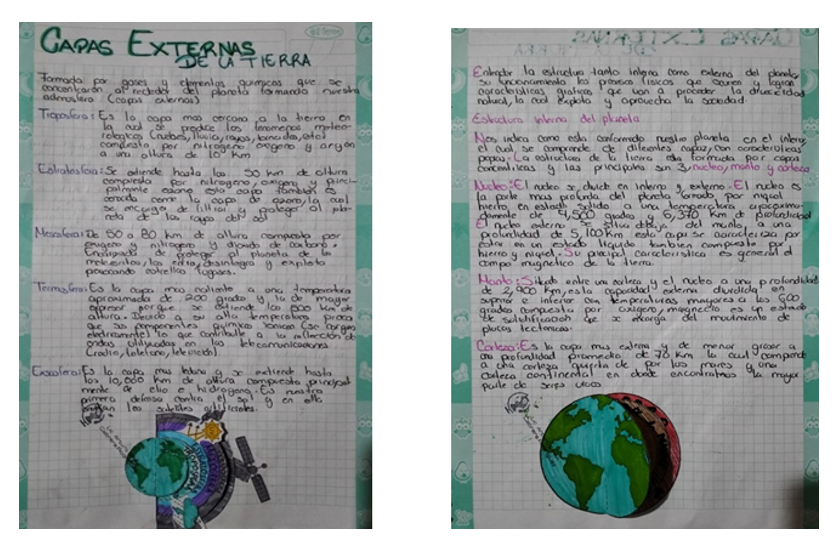 CAPAS EXTERNAS
DE LA TIERRA
Formada por gases y elementos quimicos que se
concentrarón al rededor del planeta formando nuestra
admosfera (capas externas)
Troposfera: Es la capa mas cercana a la tierra en
la cual se produce los fenomenos meteo-
rologicos (nubes, lluvia, rayos, tornados, etc)
compuesta por nitrogeno oxigeno y argon
a una altura de 10 km
Estratosfera: Se extiende hasta los 50 km de altura
compuesta por nitrogeno, oxigeno y princi-
palmente ozono esta capa tambien es
conocida como la capa de ozono, la cual
se encarga de filtrar y proteger al pla-
neta de los rayos del sol
Mesosfera: De 50 a 80 km de altura compuesta por
oxigeno y nitrogeno y dioxido de carbono.
Encargada de proteger al planeta de los
meteoritos, los enfria, desintegra y explota
provocando estrellas fugases.
Termosfera: Es la capa mas caliente a una temperatura
aproximada de 200 grados y la de mayor
grosor porque se extiende los 600 km de
altura. Devido a su alta temperatura provoca
que sus componentes quimicos ionicen (se cargen
electricamente) lo que contribuye a la reflección de
ondas utilizadas en las telecomunicaciones
(radio, telefono, televición).
Exosfera: Es la capa mas lejana y se extiende hasta
los 10,000 km de altura compuesta principal
mente de elio e hidrogeno. Es nuestra
primera defensa contra el sol y en ella
orbitan los satelites artificiales.
Entender la estructura tanto interna como externa del planeta
su funcionamiento los procesos fisicos que ocurren y logran
caracteristicas graficas que van a proceder la diversidad
natural, la cual explota y aprovecha la sociedad.
Estructura interna del planeta
Nos indica como esta conformado nuestro planeta en el interior
el cual se comprende de diferentes capaz, con caracteristicas
propias. La estructura de la tierra esta formada por capas
concentricas y las principales son 3, nucleo, manto y corteza
Nucleo: El nucleo se divide en interno y externo. El nucleo es
la parte mas profunda del planeta formado por niquel
hierro en estado solido a una temperatura aproxima-
damente de 4,500 grados y 6,370 km de profundidad
El nucleo externo se situa debajo del manto a una
profundidad de 5,100 km esta capa se caracteriza por
estar en un estado liquido tambien compuesto por
hierro y niquel. Su pricipal caracteristica es generar el
campo magnetico de la tierra.
Manto: Situado entre la corteza y el nucleo a una profundidad
de 2,900 km, esta capacidad externa dividida en
superior e inferior con temperaturas mayores a los 600
grados compuesta por oxigeno, magnecio es un estado
de solidificación que se encarga del movimiento de
placas tectonicas.
Corteza: Es la capa mas externa y de menor grosor a
una profundidad promedio de 70 km la cual comprende
a una corteza por los mares y una
corteza continental en donde encontramos la mayor
parte de seres vivos